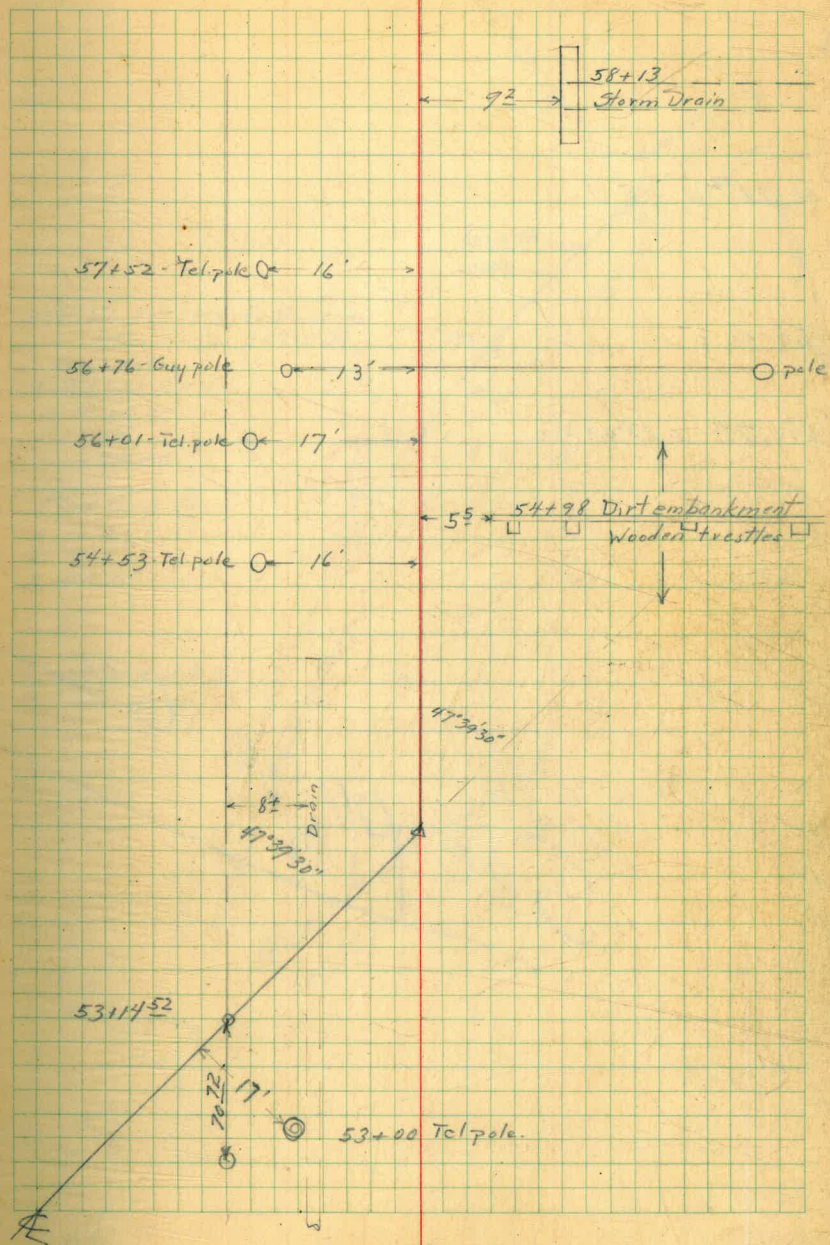 58+13
9² Storm Drain
57+52 - Tel. pole 16'
56+76 - Guy pole 13' pole
56+01 - Tel. pole 17'
5⁵ 54+98 Dirt embankment
Wooden trestles
54+53 - Tel pole 16'
47°39'30"
8'± Drain
47°39'30"
53+14⁵²
70⁷² 17'
53+00 Tel pole.